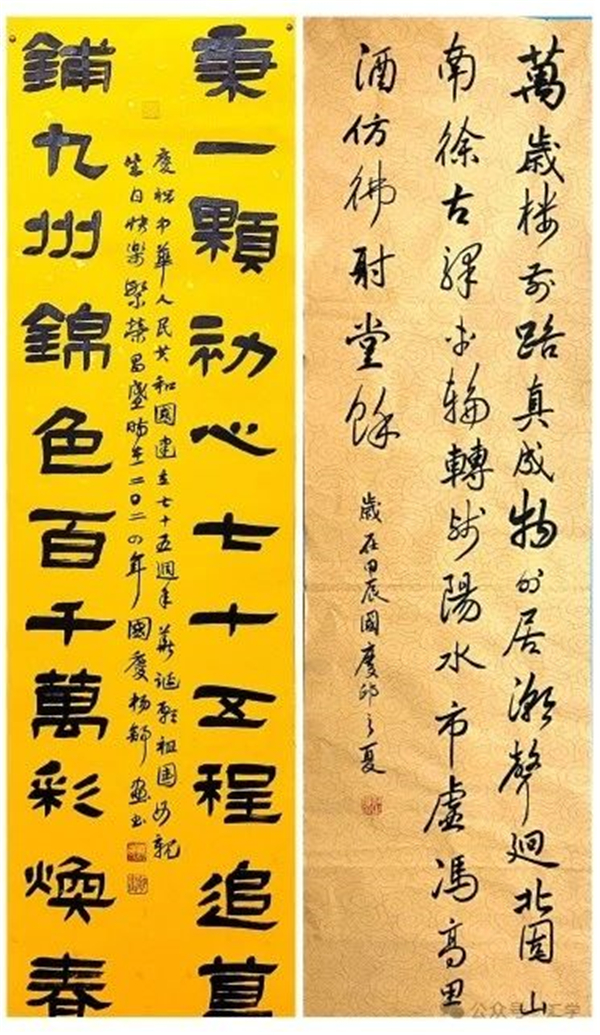 秉一顆初心七十五程追
慶祝中華人民共和國建立七十五週年華誕祝祖國母親
生日快樂繁榮昌盛時在二〇二四年國慶楊
鋪九州錦色百千萬彩煥春
萬歲楼前路真成物外居潮聲迴北固山
南徐古驛車輪轉斜陽水市虛馮高思
酒仿彿射堂餘
歲在甲辰國慶邱之夏
公众号 汇学